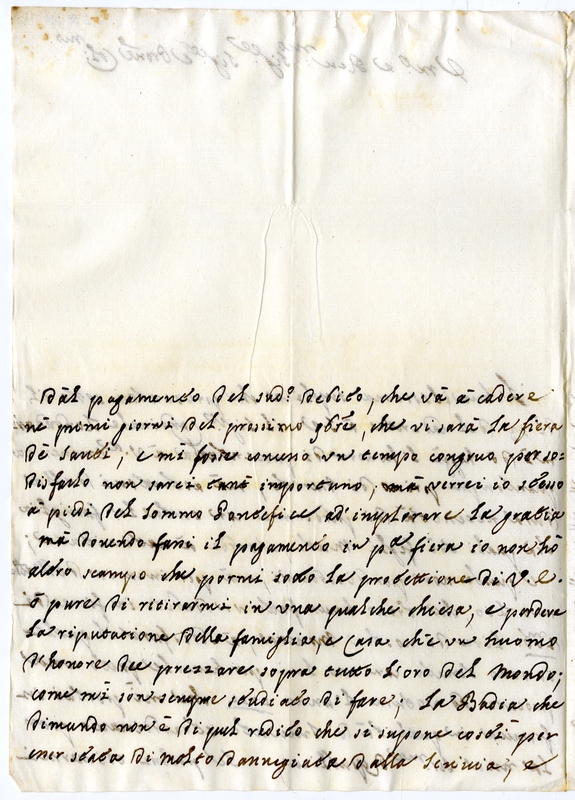 Dàl pagamento del sud.º debito, che và à cadere
nè primi giorni del prossimo 9bre, che vi sarà la fiera
dè santi, e mi fosse concesso un tempo congruo per so=
disfarlo non sarei tant importuno, mà verrei io stesso
à piedi del sommo Pontefice ad' implorare la gratia
mà dovendo farsi il pagamento in p.ta fiera io non hò
altro scampo che pormi sotto la protettione di V. E.
ò pure di ritirarmi in una qualche chiesa, e perdere
la riputatione della famiglia, e Casa ch'è un huomo
d'honore dee prezzare sopra tutto l'oro del Mondo;
come mi son sempre studiato di fare; la Badia che
dimando non è di quel reddito che si supone costì per
esser stata di molto dannegiata dalla scrivia, e